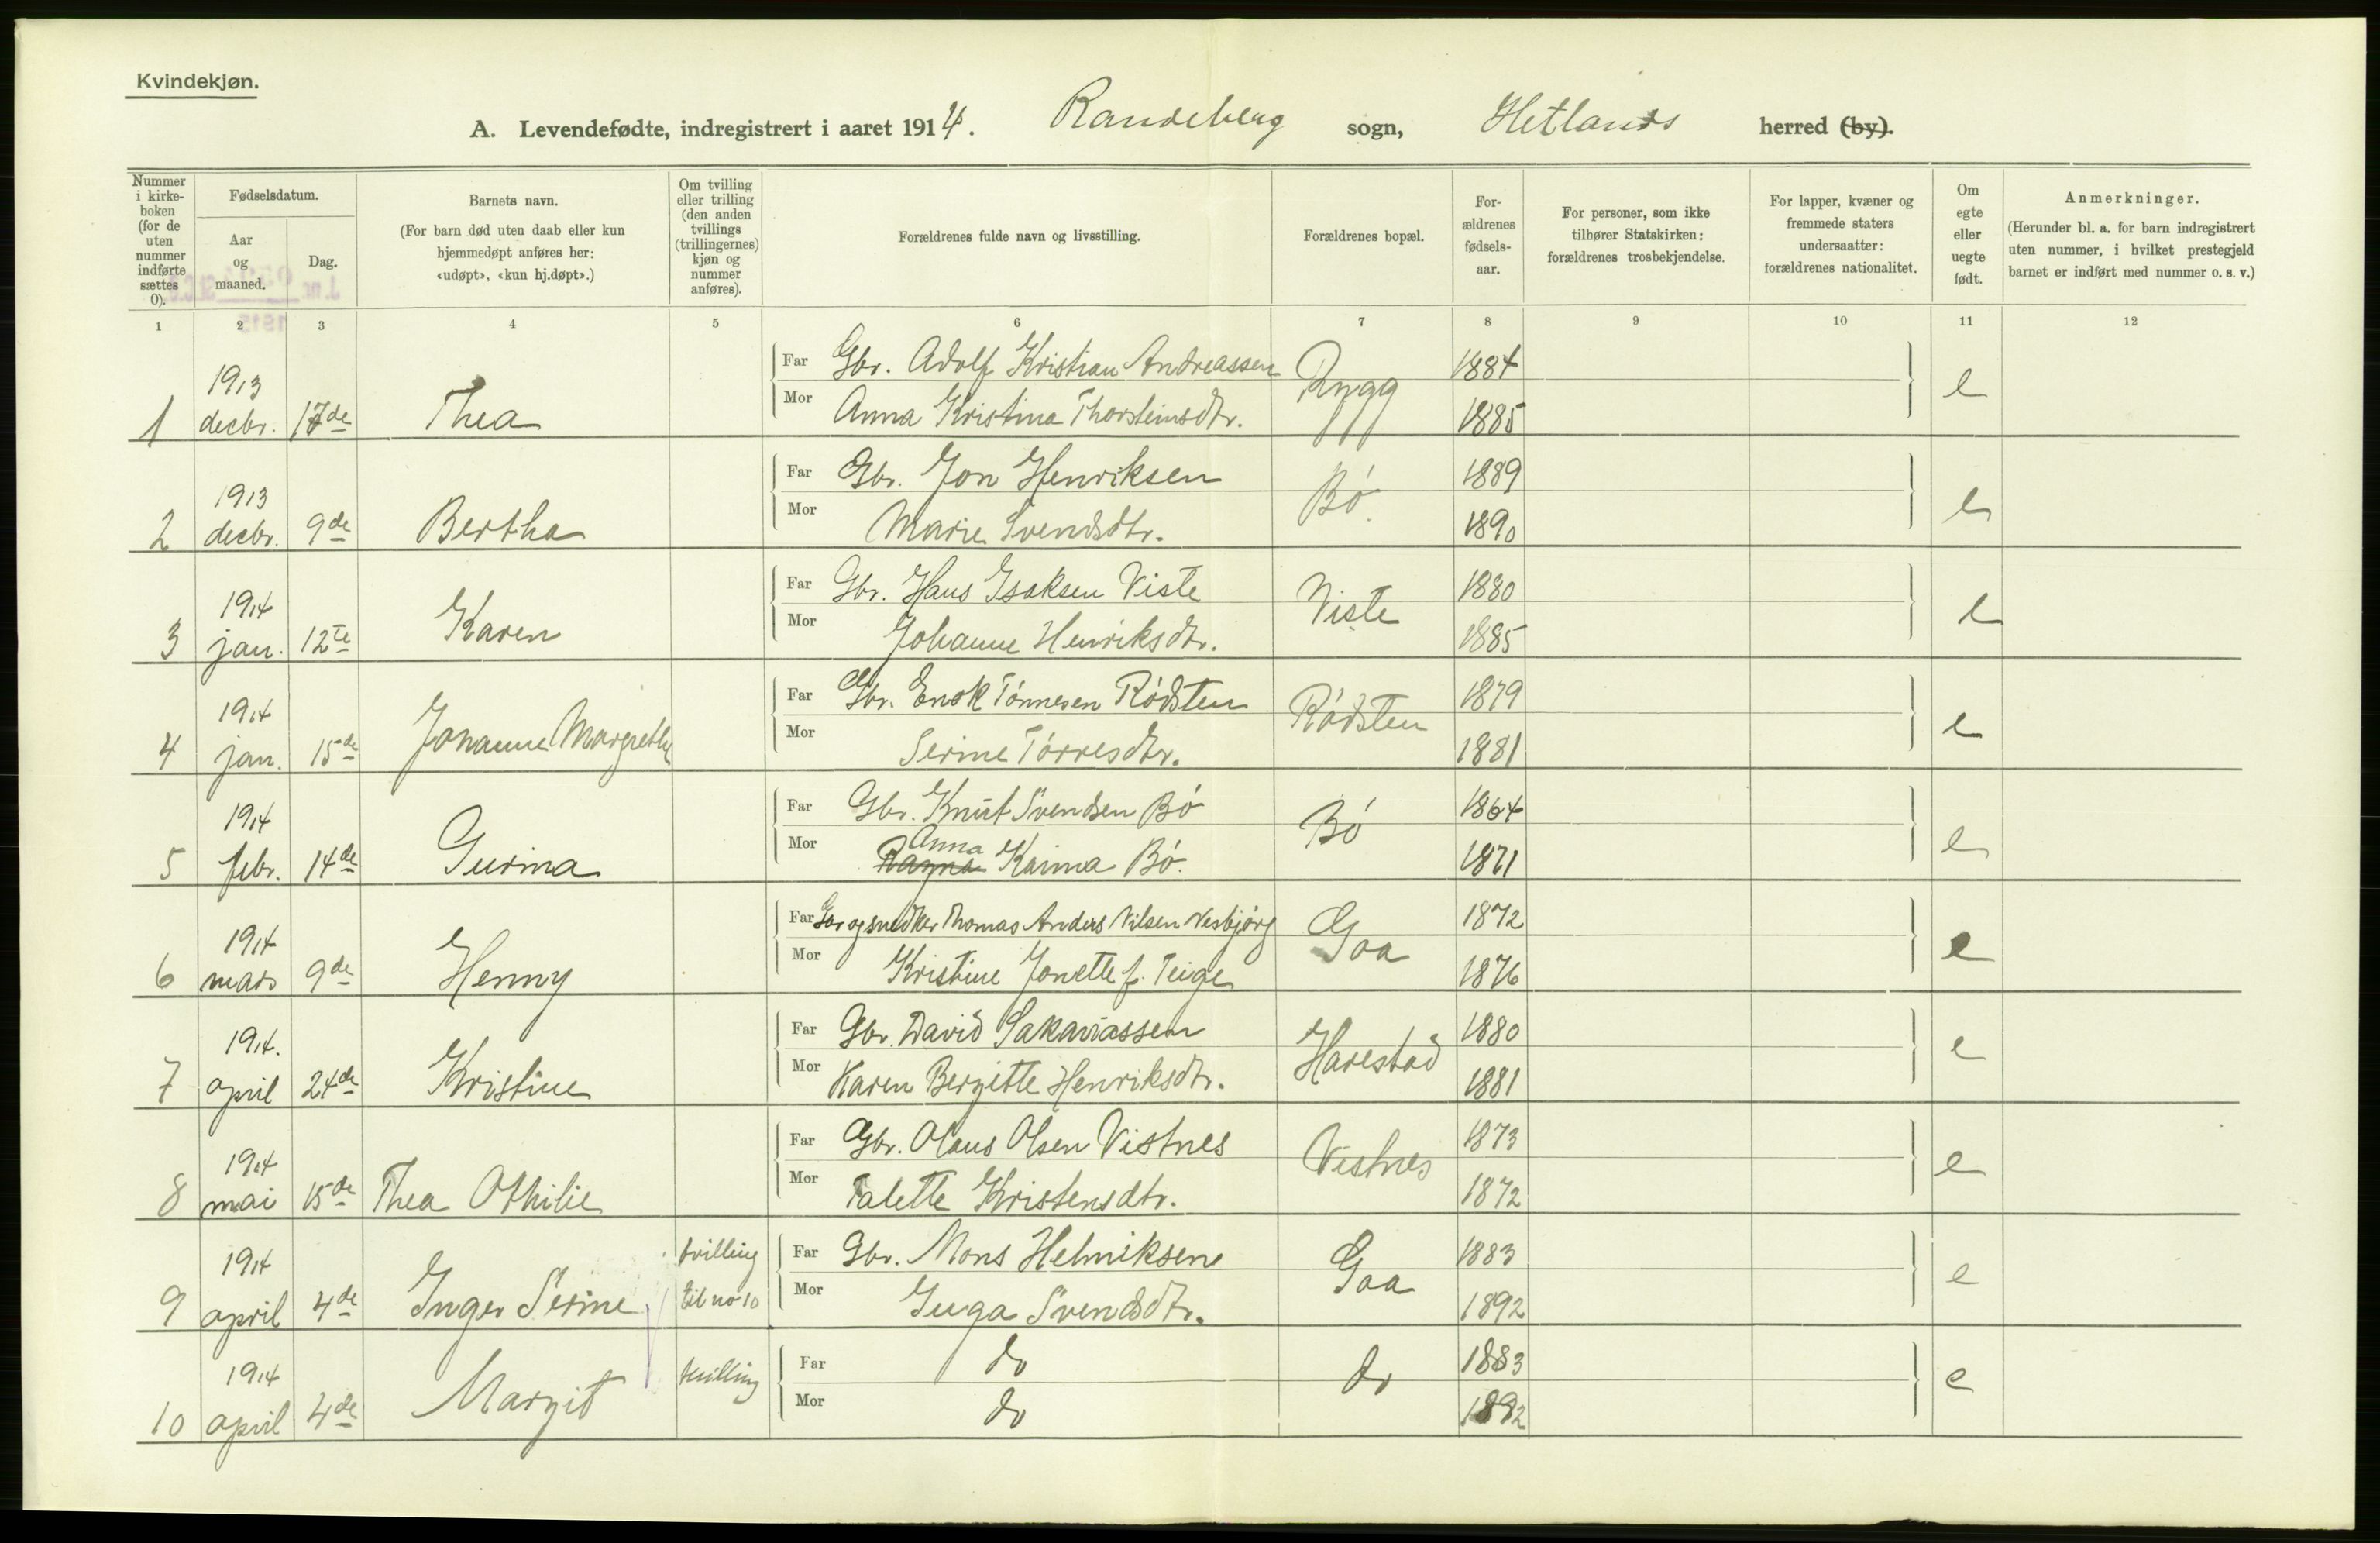 Kvindekjøn.
A. Levendefødte, indregistrert i aaret 1914. Randeberg sogn, Hetlands herred (by).
Nummer i kirke-boken (for de uten nummer indførte sættes 0).
Fødselsdatum.
Aar og maaned.
Dag.
Barnets navn.
(For barn død uten daab eller kun hjemmedøpt anføres her: «udøpt», «kun hj.døpt».)
Om tvilling eller trilling (den anden tvillings (trillingernes) kjøn og nummer anføres).
Forældrenes fulde navn og livsstilling.
Forældrenes bopæl.
For-ældrenes fødsels-aar.
For personer, som ikke tilhører Statskirken: forældrenes trosbekjendelse.
For lapper, kvæner og fremmede staters undersaatter: forældrenes nationalitet.
Om egte eller uegte født.
Anmerkninger.
(Herunder bl. a. for barn indregistrert uten nummer, i hvilket prestegjeld barnet er indført med nummer o. s. v.)
1 2 3 4 5 6 7 8 9 10 11 12
1 1913 decbr. 17de Thea Far Gbr. Adolf Kristian Andreassen Rygg 1884 e
Mor Anna Kristina Thorsteinsdtr. 1885
2 1913 decbr. 9de Bertha Far Gbr. Jon Henriksen Bó. 1889 e
Mor Marie Svendsdtr. 1890
3 1914 jan. 12te Karen Far Gbr. Hans Isaksen Viste Viste 1880 e
Mor Johanne Henriksdtr. 1885
4 1914 jan. 15de Johanne Margrethe Far Gbr. Enok Tónnesen Ródsten Ródsten 1879 e
Mor Serine Tórresdtr. 1881
5 1914 febr. 14de Gurina Far Gbr. Knut Svendsen Bó Bó 1864 e
Mor Ragna Anna Karina Bó. 1871
6 1914 mars 9de Henny Far Gbr og snedker Thomas Anders Nilsen Vesbjórg Goa 1872 e
Mor Kristine Jonette f. Teige 1876
7 1914. april 24de Kristine Far Gbr. David Sakariassen Harestad 1880 e
Mor Karen Bergitte Henriksdtr. 1881
8 1914 mai 15de Thea Othilie Far Gbr. Olaus Olsen Vistnes Vistnes 1873 e
Mor Talette Kristensdtr. 1872
9 1914 april 4de Inger Serine tvilling til no 10 Far Gbr. Mons Helmiksen Goa 1883 e
Mor Inga Svendsdtr. 1892
10 1914 april 4de Margit tvilling Far do do 1883 e
Mor do 1892